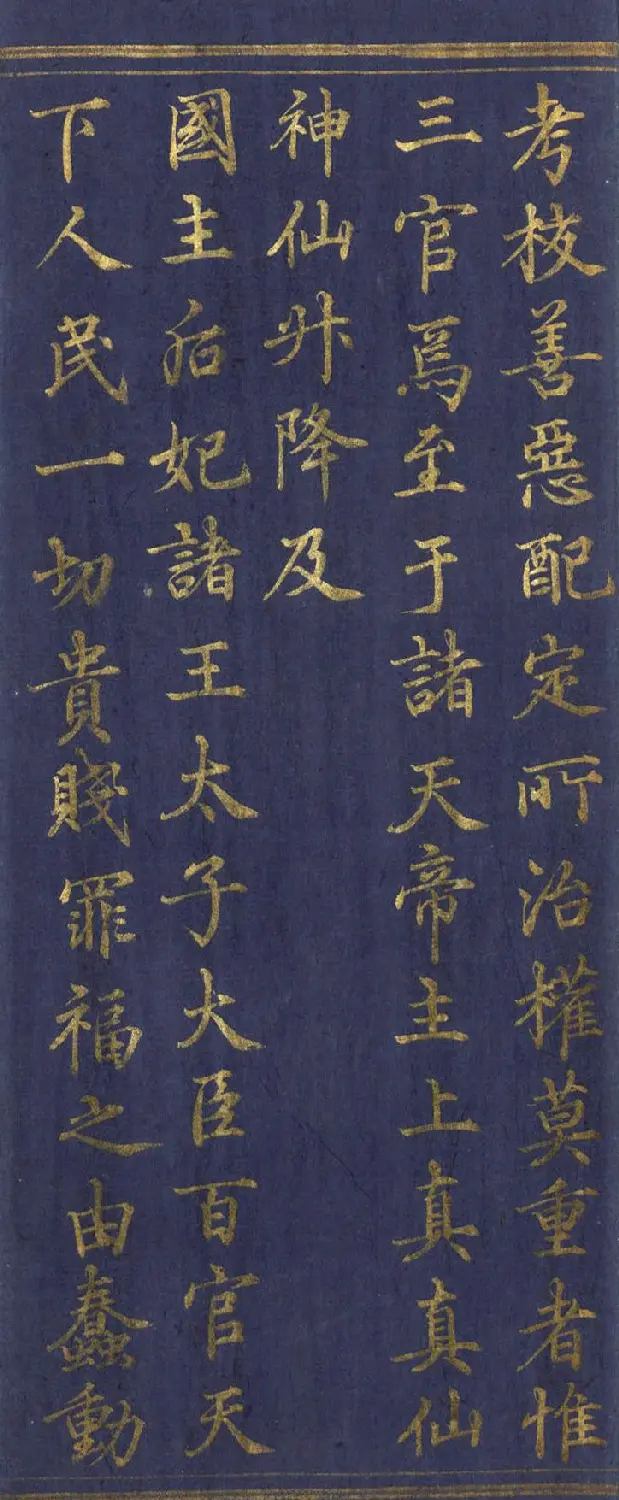 考校善惡配定所治權莫重者惟
三官焉至于諸天帝主上真真仙
神仙升降及
國主后妃諸王太子大臣百官天
下人民一切貴賤罪福之由蠢動